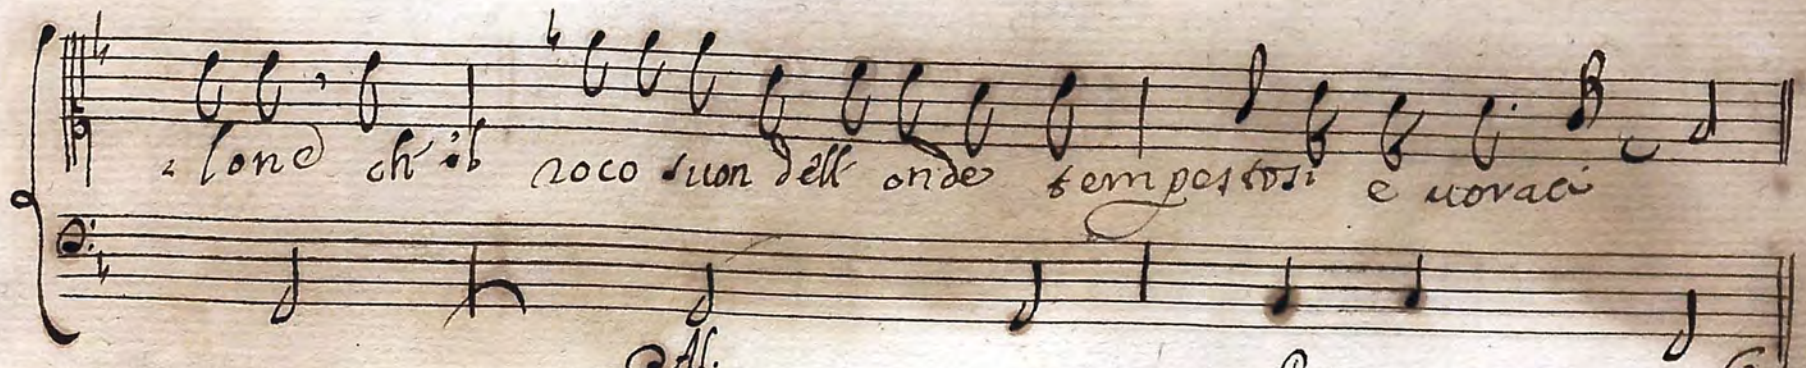 lone ch'il roco suon dell' onde tempestosi e uoraci
Al.